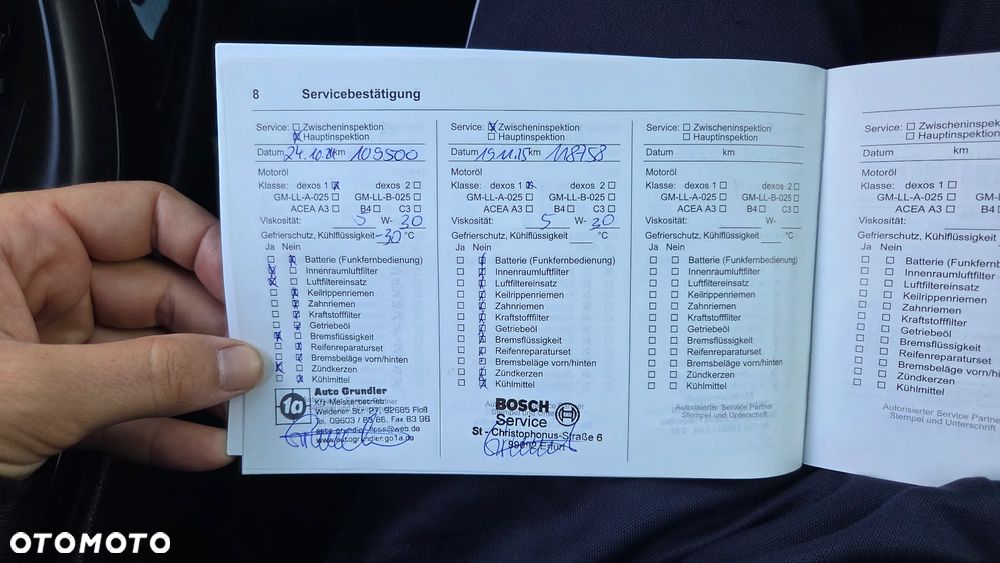 8 Servicebestätigung
Service: Zwischeninspektion
Hauptinspektion
Datum 24.10.24 km 109500
Motoröl
Klasse: dexos 1 dexos 2
GM-LL-A-025 GM-LL-B-025
ACEA A3 B4 C3
Viskosität: 5 W- 30
Gefrierschutz, Kühlflüssigkeit -30 °C
Ja Nein
Batterie (Funkfernbedienung)
Innenraumluftfilter
Luftfiltereinsatz
Keilrippenriemen
Zahnriemen
Kraftstofffilter
Getriebeöl
Bremsflüssigkeit
Reifenreparaturset
Bremsbeläge vorn/hinten
Zündkerzen
Kühlmittel
Auto Grundler
Kfz-Meisterbetrieb
Weidener Str. 27, 92685 Floß
Tel. 09603 / 83/86, Fax 83 96
auto-grundler-floss@web.de
www.autogrundler.go1a.de
Service: Zwischeninspektion
Hauptinspektion
Datum 19.11.25 km 118758
Motoröl
Klasse: dexos 1 dexos 2
GM-LL-A-025 GM-LL-B-025
ACEA A3 B4 C3
Viskosität: 5 W- 30
Gefrierschutz, Kühlflüssigkeit °C
Ja Nein
Batterie (Funkfernbedienung)
Innenraumluftfilter
Luftfiltereinsatz
Keilrippenriemen
Zahnriemen
Kraftstofffilter
Getriebeöl
Bremsflüssigkeit
Reifenreparaturset
Bremsbeläge vorn/hinten
Zündkerzen
Kühlmittel
BOSCH
Service
St - Christophonus-Straße 6
Erfurt
Service: Zwischeninspektion
Hauptinspektion
Datum km
Motoröl
Klasse: dexos 1 dexos 2
GM-LL-A-025 GM-LL-B-025
ACEA A3 B4 C3
Viskosität: W-
Gefrierschutz, Kühlflüssigkeit °C
Ja Nein
Batterie (Funkfernbedienung)
Innenraumluftfilter
Luftfiltereinsatz
Keilrippenriemen
Zahnriemen
Kraftstofffilter
Getriebeöl
Bremsflüssigkeit
Reifenreparaturset
Bremsbeläge vorn/hinten
Zündkerzen
Kühlmittel
Autorisierter Service Partner
Stempel und Unterschrift
Service: Zwischeninspek
Hauptinspektion
Datum km
Motoröl
Klasse: dexos 1
GM-LL-A-025 GM-L
ACEA A3 B
Viskosität:
Gefrierschutz, Kühlflüssigkeit
Ja Nein
Batterie (Funkfernbed
Innenraumluftfilter
Luftfiltereinsatz
Keilrippenriemen
Zahnriemen
Kraftstofffilter
Getriebeöl
Bremsflüssigkeit
Reifenreparaturset
Bremsbeläge vorn/hi
Zündkerzen
Kühlmittel
Autorisierter Service Partn
Stempel und Unterschrift
OTOMOTO